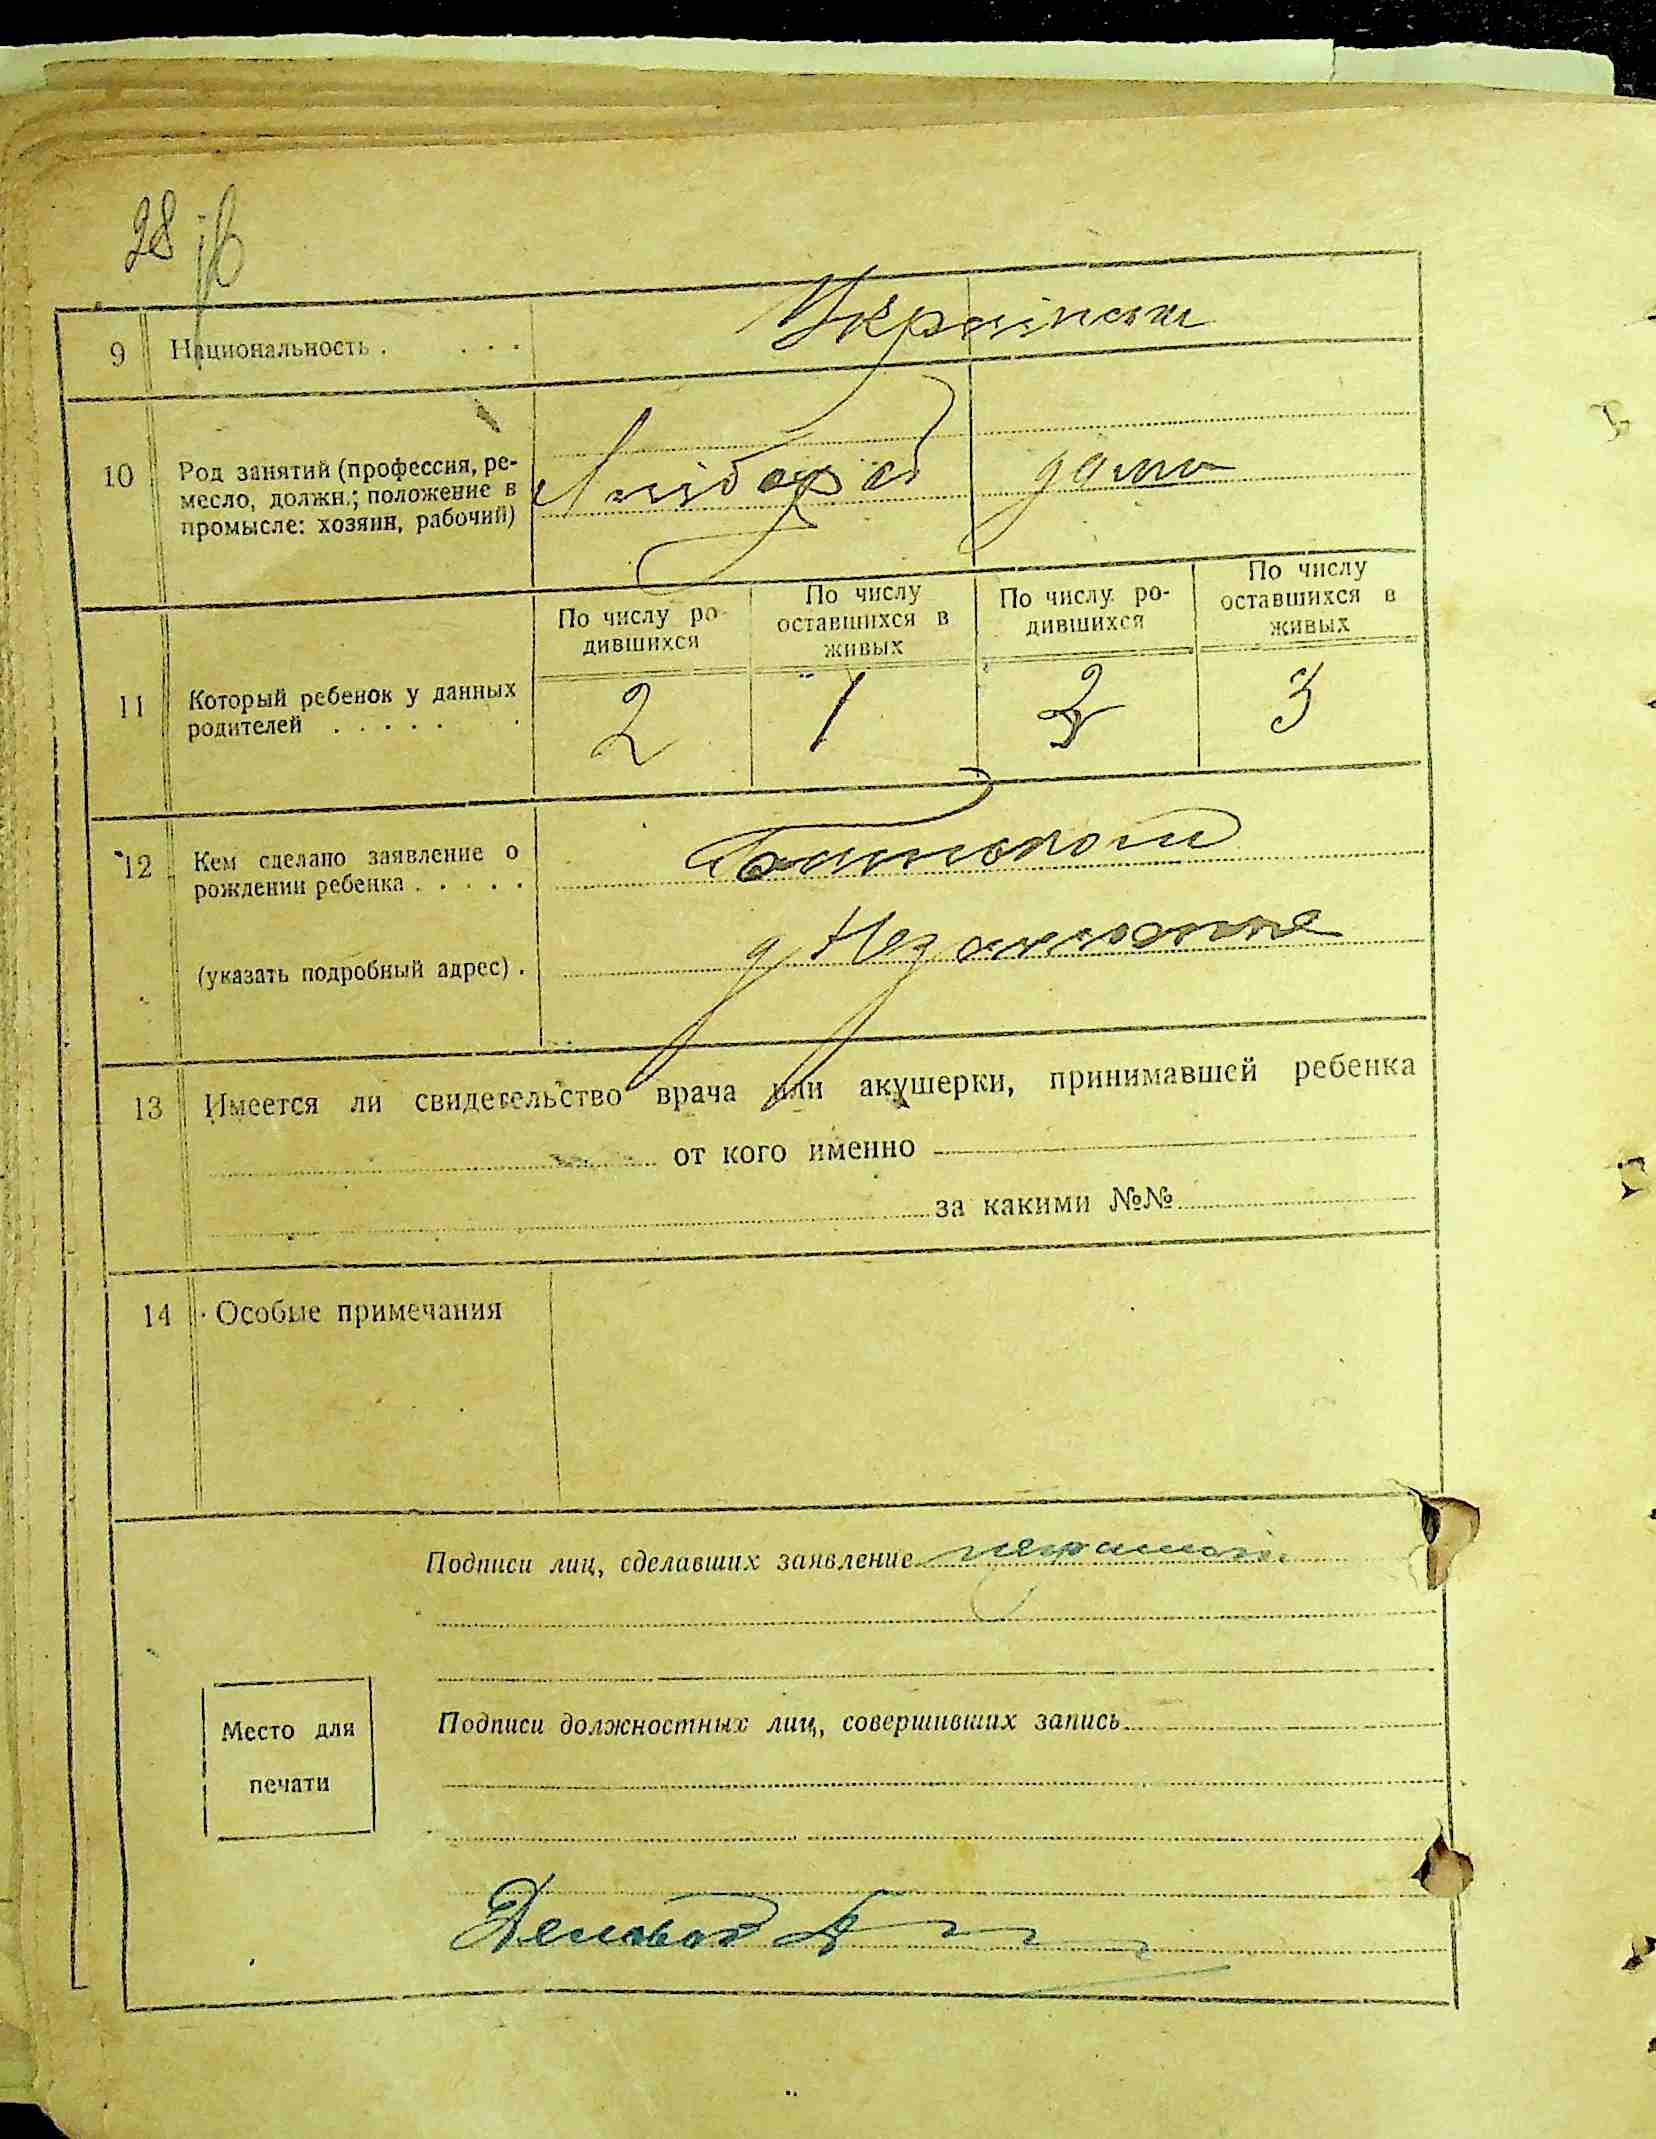 28
9 Национальность . . . . Українські
10 Род занятий (профессия, ре-
месло, должн.; положение в
промысле: хозяин, рабочий)
дома
По числу ро-
дившихся
По числу
оставшихся в
живых
По числу ро-
дившихся
По числу
оставшихся в
живых
11 Который ребенок у данных
родителей . . . . . .
2 1 3 3
12 Кем сделано заявление о
рождении ребенка . . . . .
Батьком
(указать подробный адрес) .
13 Имеется ли свидетельство врача или акушерки, принимавшей ребенка
от кого именно
за какими №№
14 Особые примечания
Подписи лиц, сделавших заявление
Место для
печати
Подписи должностных лиц, совершивших запись